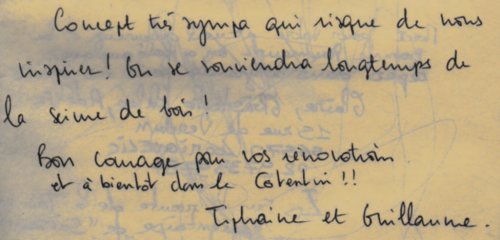 Concept très sympa qui risque de nous
inspirer ! On se souviendra longtemps de
la scine de bois !
Bon courage pour vos rénovations
et à bientôt dans le Cotentin !!
Tiphaine et Guillaume.